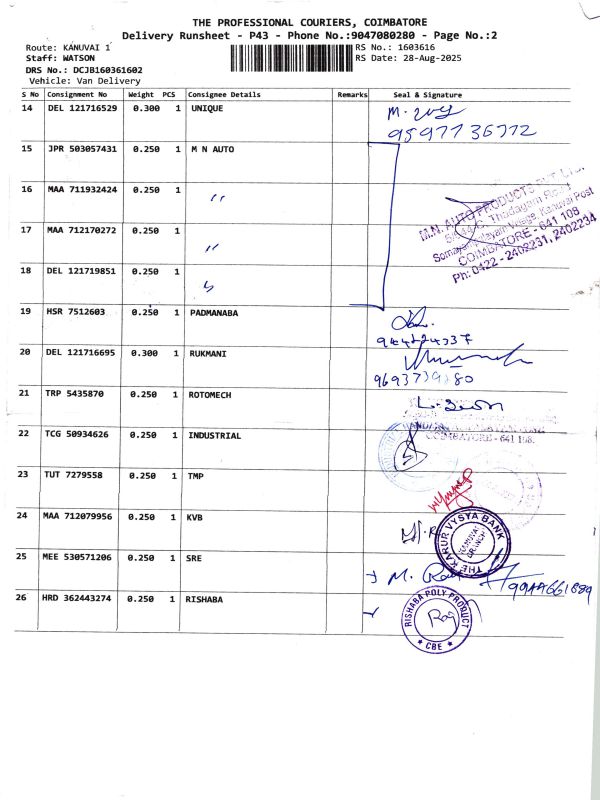 THE PROFESSIONAL COURIERS, COIMBATORE
Delivery Runsheet - P43 - Phone No.:9047080280 - Page No.:2
Route: KANUVAI 1
RS No.: 1603616
Staff: WATSON
RS Date: 28-Aug-2025
DRS No.: DCJB160361602
Vehicle: Van Delivery
S No Consignment No Weight PCS Consignee Details Remarks Seal & Signature
14 DEL 121716529 0.300 1 UNIQUE
9597736772
15 JPR 503057431 0.250 1 M N AUTO
16 MAA 711932424 0.250 1 "
17 MAA 712170272 0.250 1 "
18 DEL 121719851 0.250 1 "
M.N. AUTO PRODUCTS PVT. LTD.
Thudagam Road
Somayam Palayam Village, Kanuvai Post
COIMBATORE - 641 108
Ph: 0422 - 2402231, 2402234
19 HSR 7512603 0.250 1 PADMANABA
20 DEL 121716695 0.300 1 RUKMANI
9693739280
21 TRP 5435870 0.250 1 ROTOMECH
22 TCG 50934626 0.250 1 INDUSTRIAL
COIMBATORE - 641 108
23 TUT 7279558 0.250 1 TMP
24 MAA 712079956 0.250 1 KVB
THE KARUR VYSYA BANK
KANUVAI
BRANCH
25 MEE 530571206 0.250 1 SRE
9944661889
26 HRD 362443274 0.250 1 RISHABA
RISHABA POLY PRODUCT
CBE